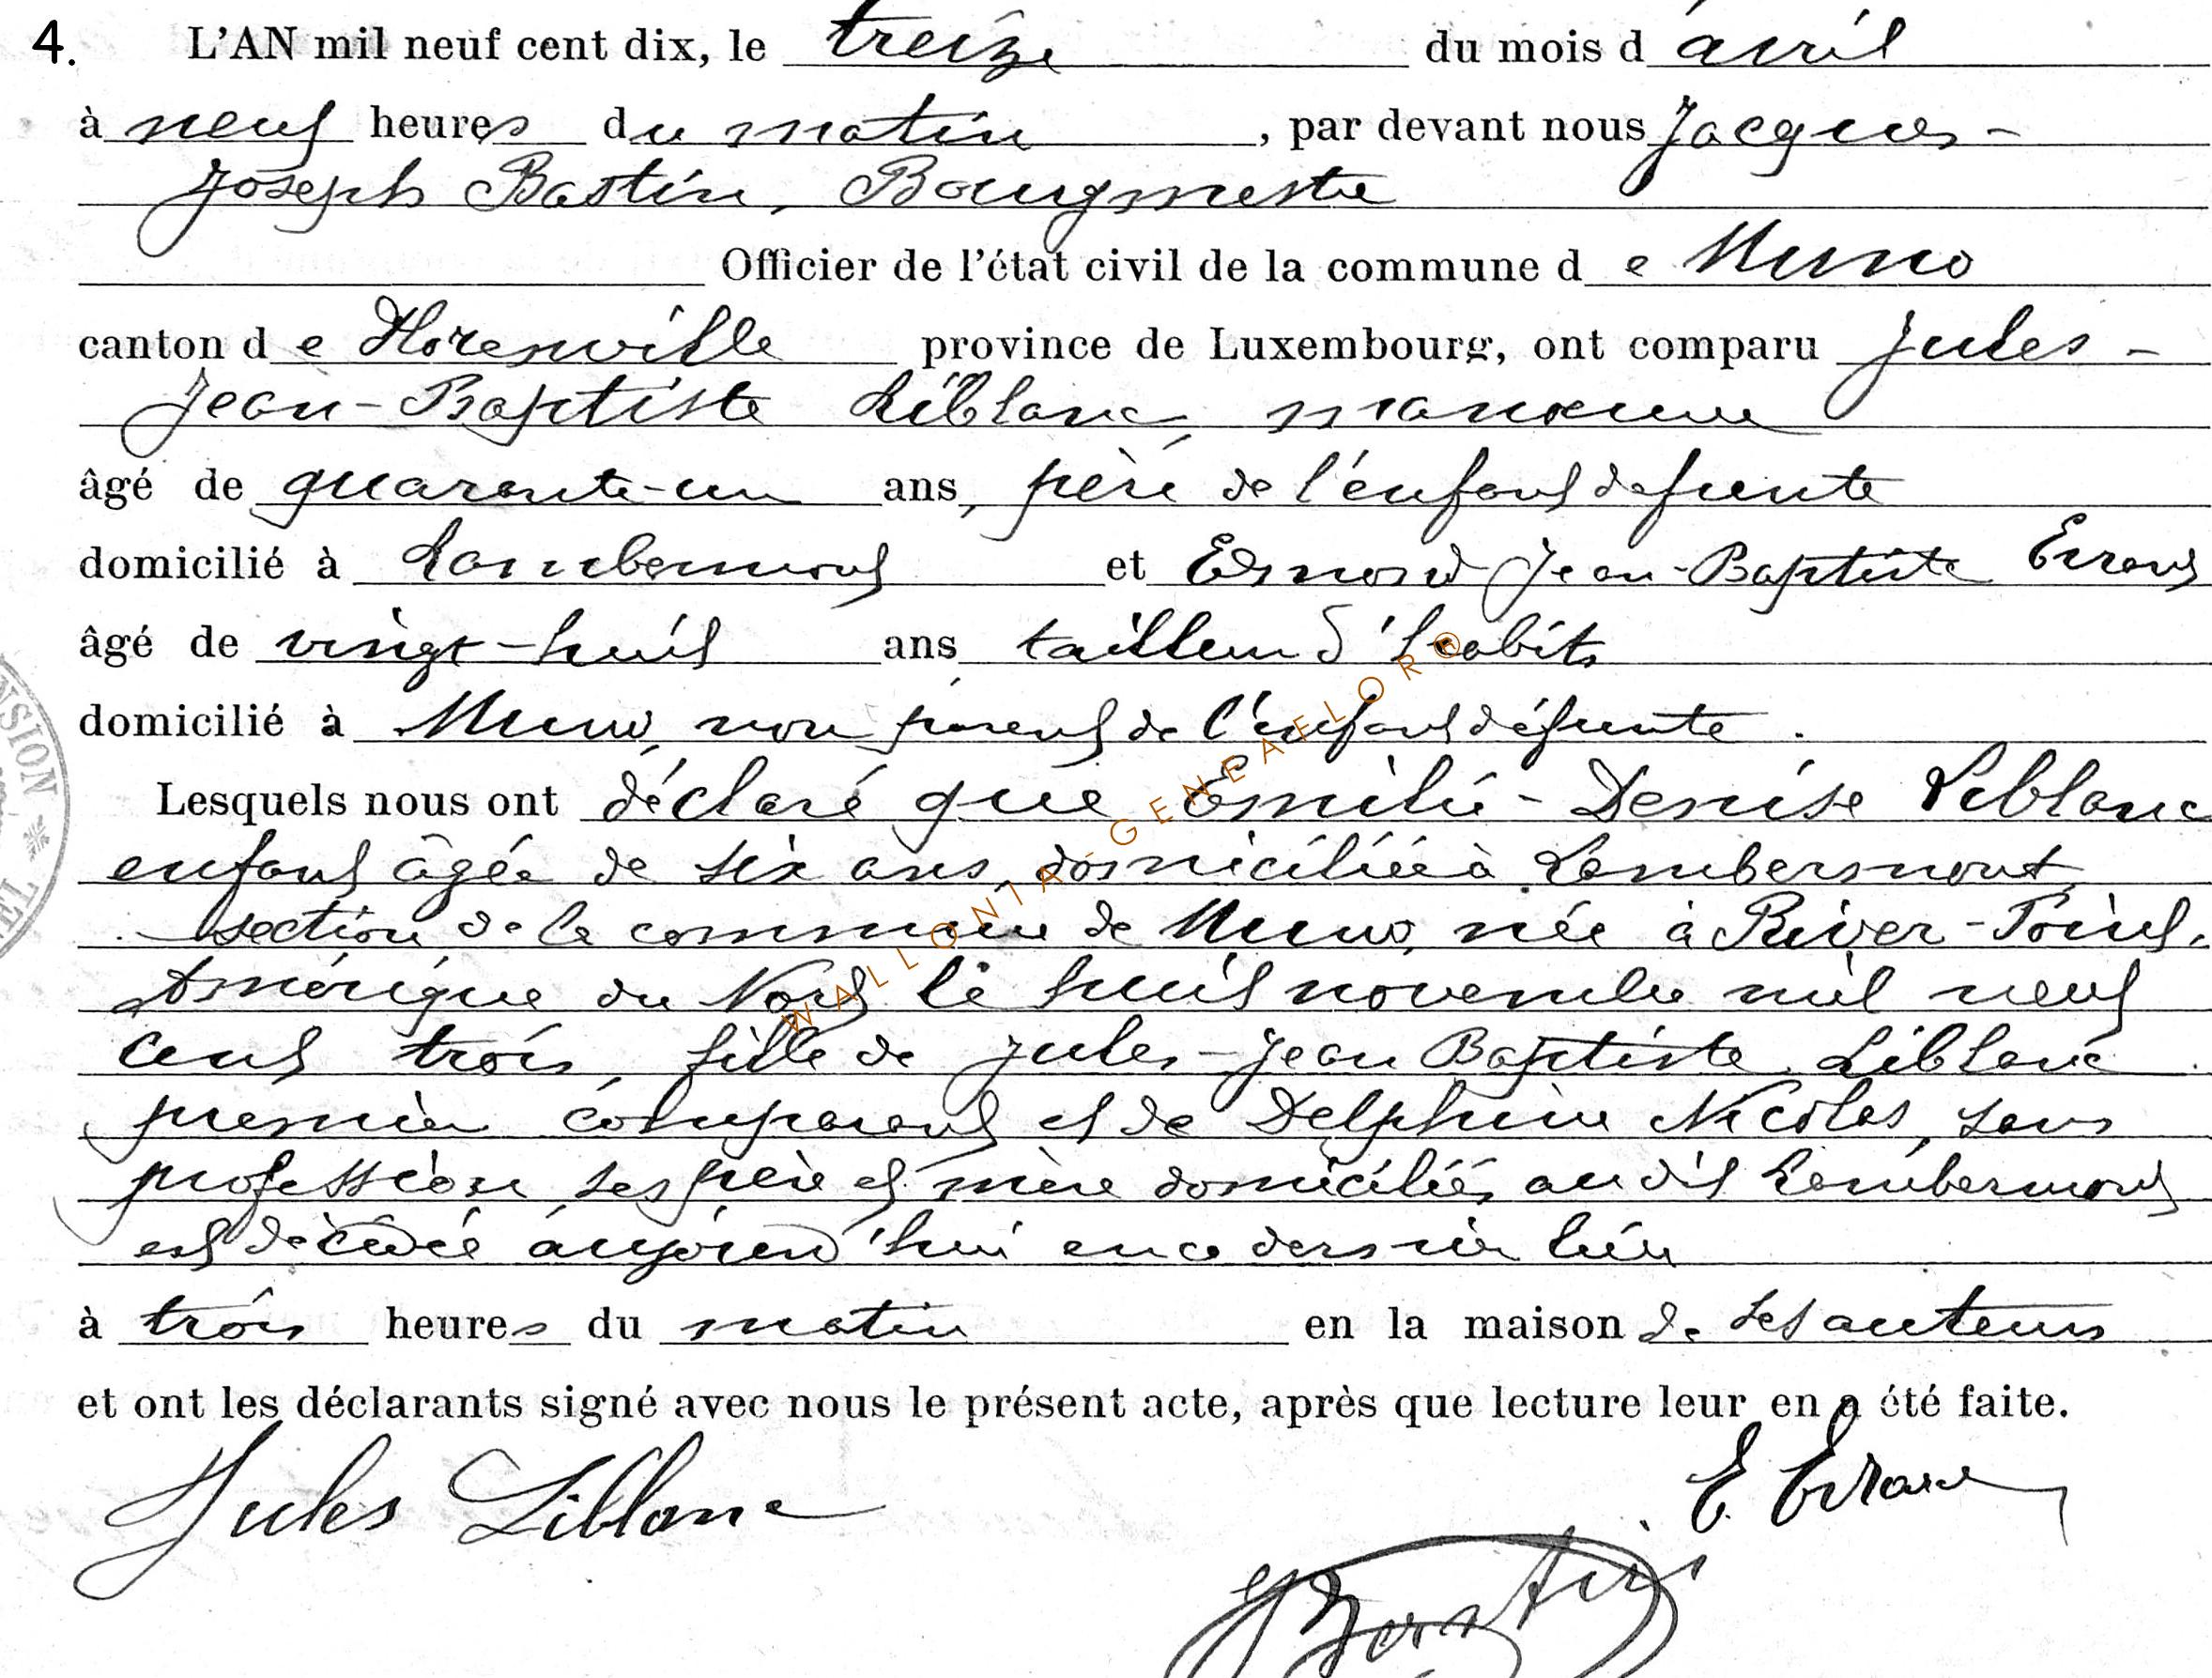 4. L'AN mil neuf cent dix, le treize du mois d avril
à neuf heures du matin, par devant nous Jacques-
Joseph Bastin, Bourgmestre
Officier de l'état civil de la commune d e Muno
canton d e Florenville province de Luxembourg, ont comparu Jules-
Jean-Baptiste Liblanc, manoeuvre
âgé de quarante-un ans, père de l'enfant défunte
domicilié à Lambermont et Edmond Jean-Baptiste Errard
âgé de vingt-huit ans, tailleur d'habits
domicilié à Muno, non parent de l'enfant défunte.
Lesquels nous ont déclaré que Emilie-Denise Liblanc
enfant âgée de six ans, domiciliée à Lambermont,
section de la commune de Muno, née à River-Point,
Amérique du Nord le huit novembre mil neuf
cent trois, fille de Jules-Jean Baptiste Liblanc
premier comparant et de Delphine Nicolas, sans
profession, ses père et mère domiciliés au dit Lambermont
est décédée aujourd'hui en ce dernier lieu
à trois heures du matin en la maison de ses auteurs
et ont les déclarants signé avec nous le présent acte, après que lecture leur en a été faite.
Jules Liblanc
E. Errard
J Bastin
WALLONIA-GENEAFLOR®
NSION
EL